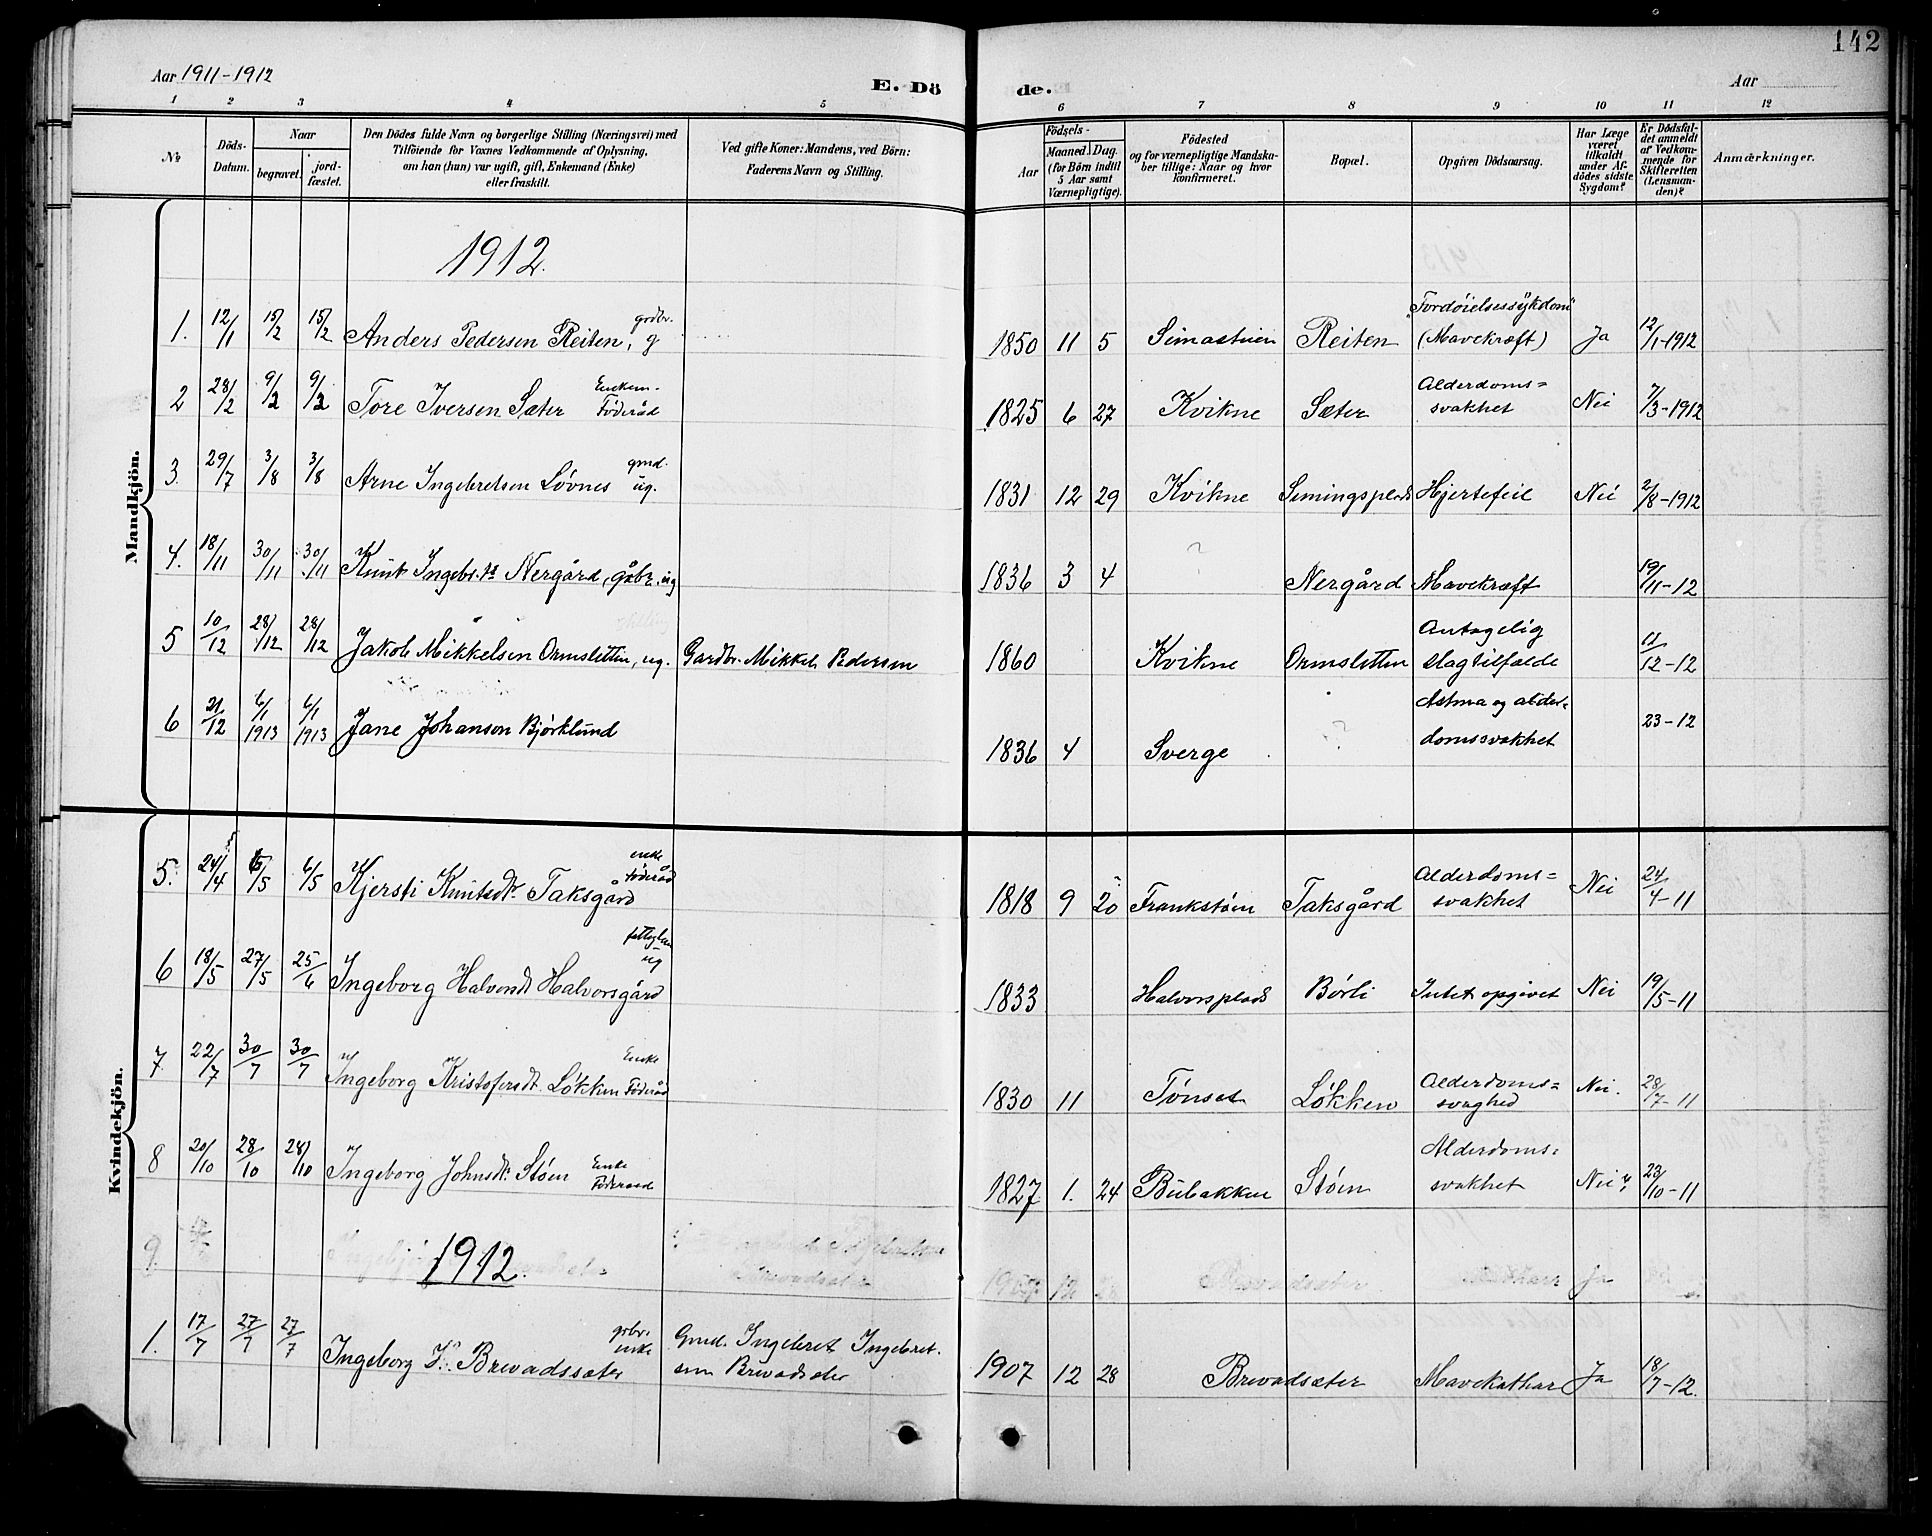 142
Aar 1911-1912
E. Dö de.
Aar
1 2 3 4 5 6 7 8 9 10 11 12
No
Döds-Datum.
Naar
begravet.
jord-fæstet.
Den Dödes fulde Navn og borgerlige Stilling (Næringsvei) med
Tilföiende for Voxnes Vedkommende af Oplysning,
om han (hun) var ugift, gift, Enkemand (Enke)
eller fraskilt.
Ved gifte Koner: Mandens, ved Börn:
Faderens Navn og Stilling.
Födsels-
Aar
Maaned. Dag.
(for Börn indtil
5 Aar samt
Værnepligtige).
Födested
og for værnepligtige Mandska-
ber tillige: Naar og hvor
konfirmeret.
Bopæl.
Opgiven Dödsaarsag.
Har Læge
været
tilkaldt
under Af-
dödes sidste
Sygdom?
Er Dödsfal-
det anmeldt
af Vedkom-
mende for
Skifteretten
(Lensman-
den)?
Anmærkninger.
Mandkjön.
1912.
1. 12/1 15/2 15/2 Anders Pedersen Reiten, grdbr. g 1850 11 5 Reiten "Fordøielsessykdom" (Mavekræft) Ja 12/1-1912
2 28/2 9/3 9/3 Tore Iversen Sæter Enkem. Föderåd 1825 6 27 Kvikne Sæter Alderdoms=svakhet Nei 7/3-1912
3. 29/7 3/8 3/8 Arne Ingebretsen Løvnes gmd. ug. 1831 12 29 Kvikne Simingsplads Hjertefeil Nei 2/8-1912
4. 18/11 30/11 30/11 Knut Ingebr.sn Nergård, ug 1836 3 4 ? Nergård Mavekræft 19/11-12
5 10/12 28/12 28/12 Jakob Mikkelsen Ormslettin, ug. Gardbr. Mikkel Pedersen 1860 Kvikne Ormslettin Antagelig slagtilfælde 11/12-12
6 21/12 6/1 1913 6/1 1913 Jane Johanson Bjørklund 1836 4 Sverge ? Astma og alder-domssvakhet 23-12
Kvindekjön.
5. 24/4 6/5 6/5 Kjersti Knutsdtr. Taksgård enke föderåd 1818 9 20 Frankstøin Taksgård Alderdoms=svakhet Nei 24/4-11
6 18/5 27/5 25/6 Ingeborg Halvorsdt Halvorsgård ug 1833 Halvorsplads Børli Intet opgivet Nei 19/5-11
7 22/7 30/7 30/7 Ingeborg Kristofersdt. Løkken Enke Föderåd 1830 11 Tønset Løkken Alderdoms=svaghed Nei. 28/7-11
8 20/10 28/10 28/10 Ingeborg Johnsdt: Støen Enke Föderaad 1827 1. 24 Bubakken Støen Alderdoms=svakhet Nei 23/10-11
9.
1912.
1. 17/7 27/7 27/7 Ingeborg I. Brevadssæter enke Gmd. Ingebret Ingebret-
sen Brevadsæter 1907 12 28 Brevadsæter Mavekathar Ja 18/7-12.